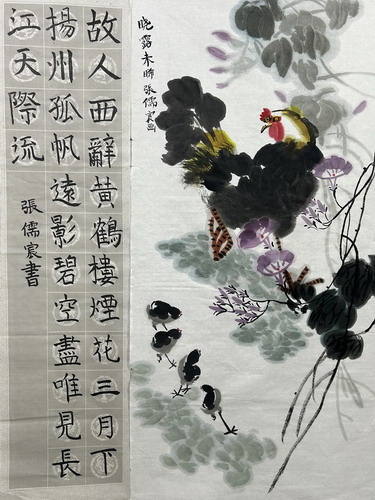 故人西辭黄鶴樓煙花三月下
揚州孤帆遠影碧空盡唯見長
江天際流
張儒宸書
晓露未晞張儒宸画